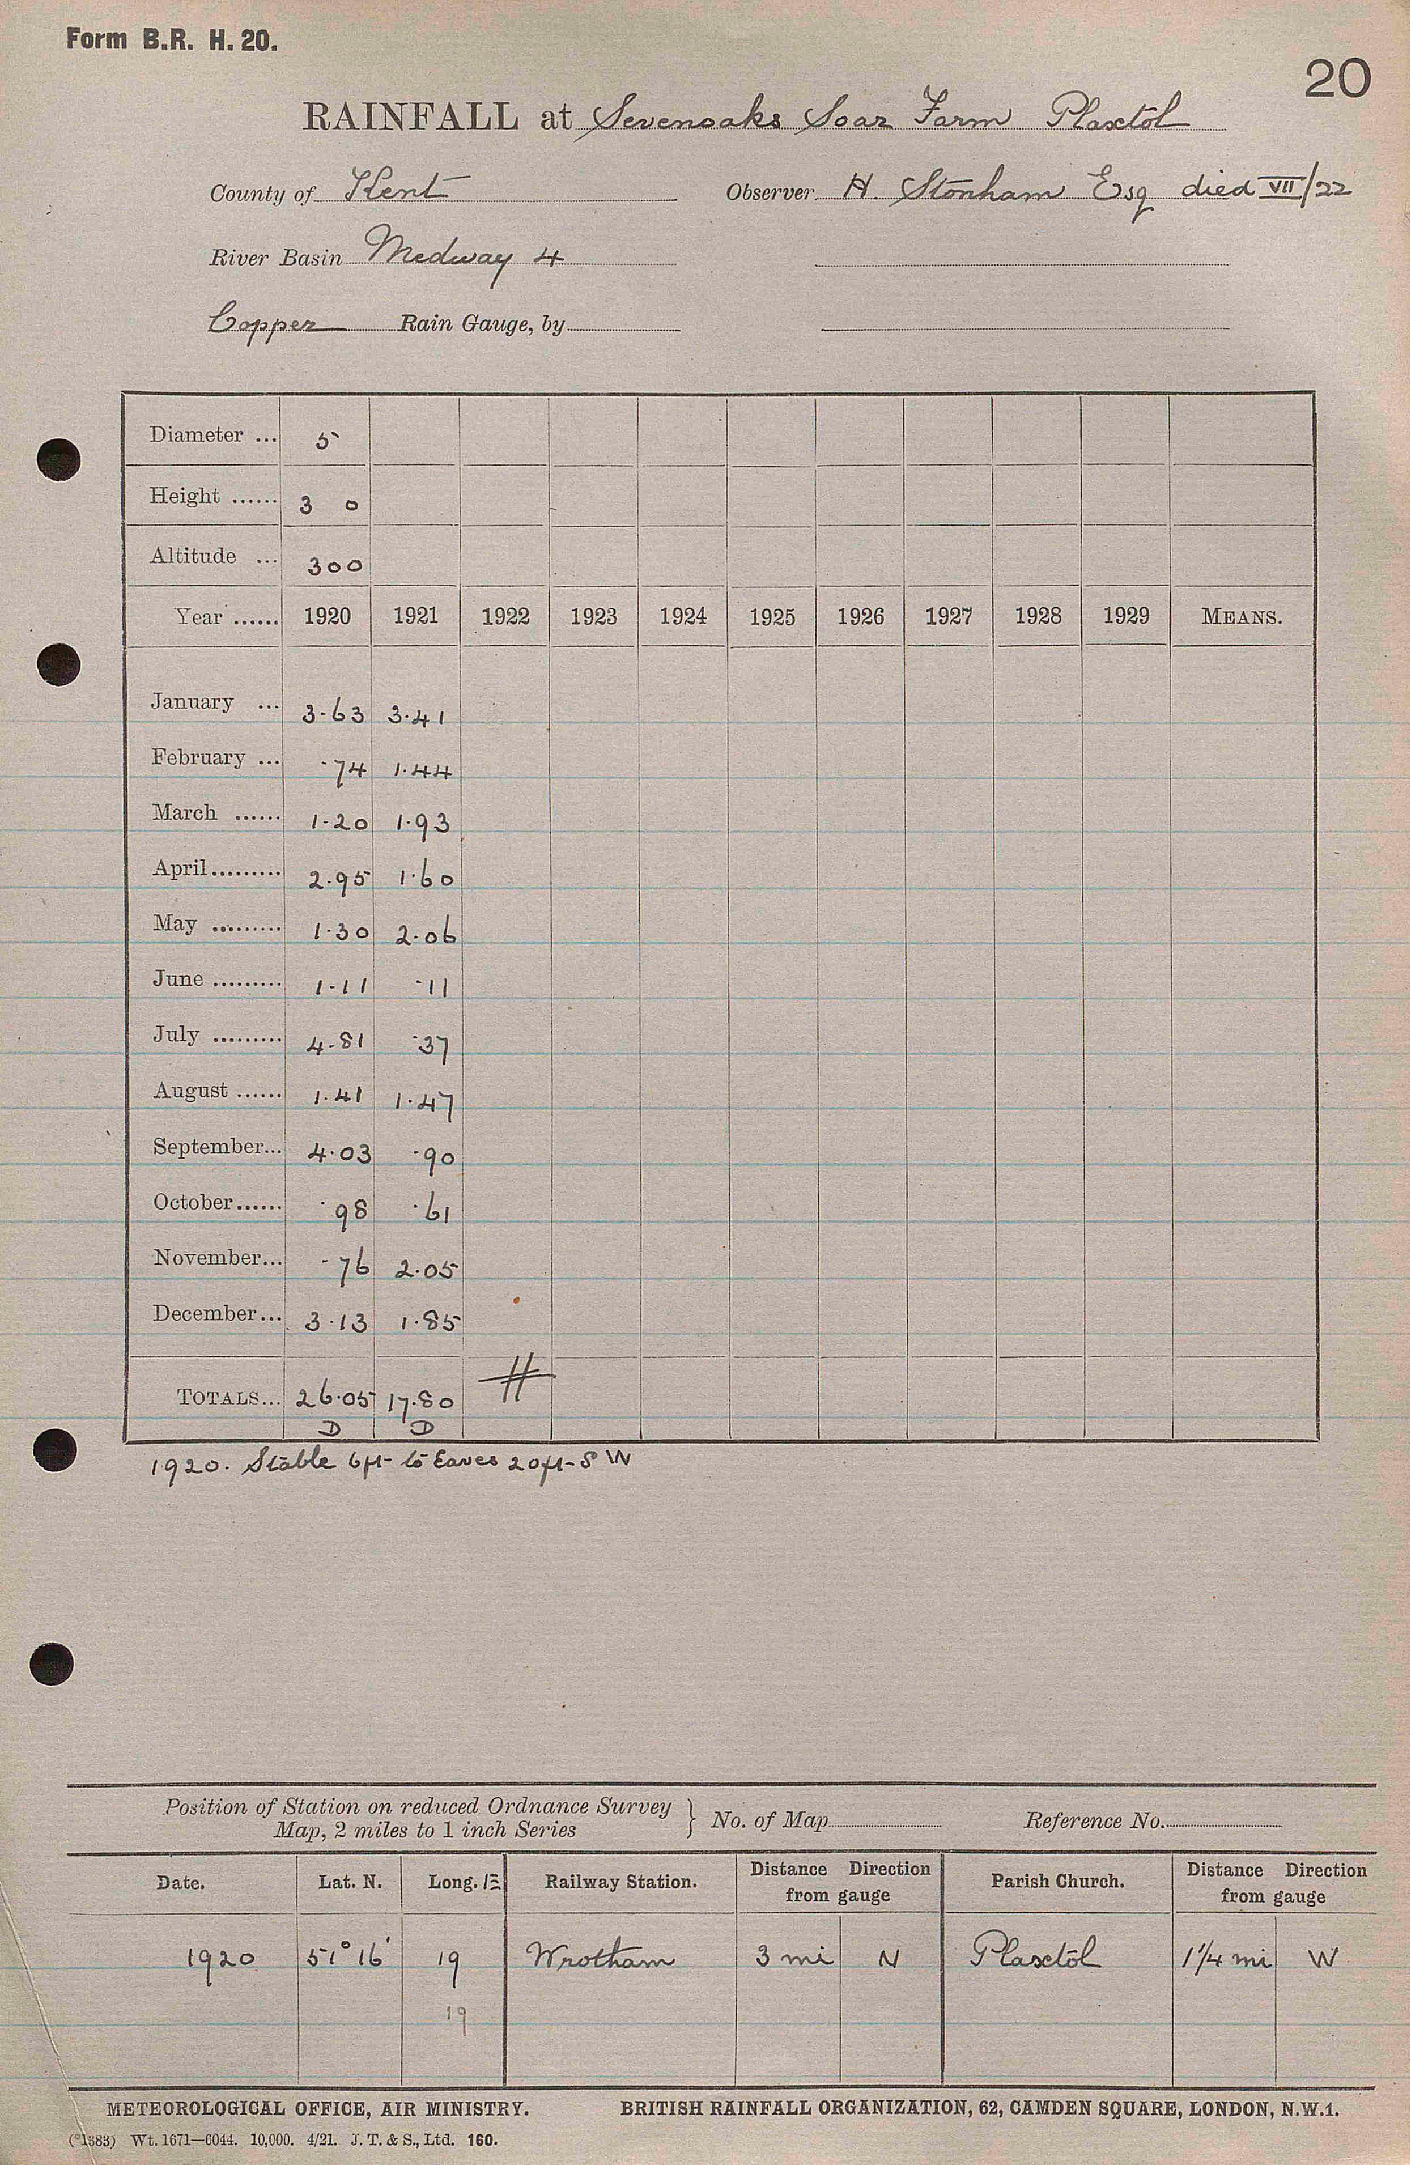 Form B.R. H. 20.
20
RAINFALL at Sevenoaks Soar Farm Plaxtol
County of Kent Observer H. Stonham Esq died VII/22
River Basin Medway 4
Copper Rain Gauge, by
Diameter ... 5
Height ...... 3 0
Altitude ... 300
Year ...... 1920 1921 1922 1923 1924 1925 1926 1927 1928 1929 MEANS.
January ... 3.63 3.41
February ... .74 1.44
March ...... 1.20 1.93
April......... 2.95 1.60
May ......... 1.30 2.06
June ......... 1.11 .11
July ......... 4.81 .37
August ...... 1.41 1.47
September... 4.03 .90
October...... .98 .61
November... .76 2.05
December... 3.13 1.85
TOTALS... 26.05 17.80
D D
1920. Stable 6ft to Eaves 20ft S W
Position of Station on reduced Ordnance Survey
Map, 2 miles to 1 inch Series } No. of Map Reference No.
Date. Lat. N. Long. E Railway Station. Distance Direction from gauge Parish Church. Distance Direction from gauge
1920 51° 16' 19 Wrotham 3 mi N Plaxtol 1 1/4 mi W
19
METEOROLOGICAL OFFICE, AIR MINISTRY. BRITISH RAINFALL ORGANIZATION, 62, CAMDEN SQUARE, LONDON, N.W.1.
Wt. 1671—C044. 10,000. 4/21. J. T. & S., Ltd. 160.